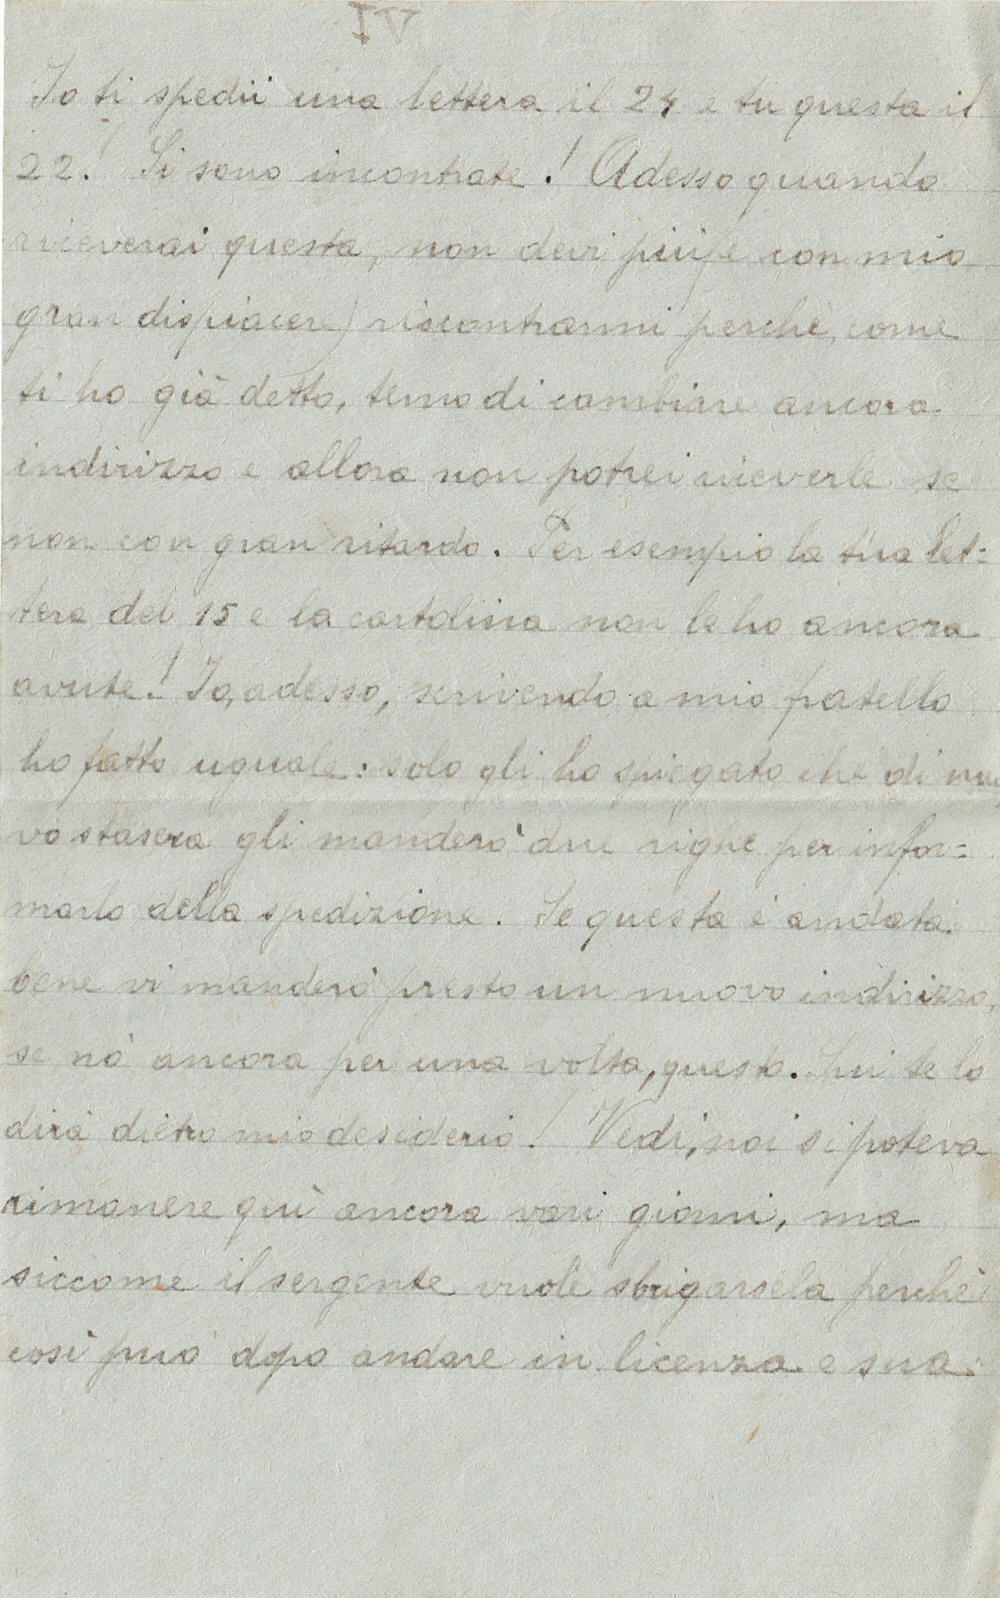 IV
Io ti spedii una lettera il 24 e tu questa il
22! Si sono incontrate! Adesso quando
riceverai questa, non devi più (e con mio
gran dispiacere) riscontrarmi perchè, come
ti ho già detto, temo di cambiare ancora
indirizzo e allora non potrei riceverle se
non con gran ritardo. Per esempio la tua let=
tera del 15 e la cartolina non le ho ancora
avute! Io, adesso, scrivendo a mio fratello
ho fatto uguale: solo gli ho spiegato che di nuo
vo stasera gli manderò due righe per infor=
marlo della spedizione. Se questa è andata
bene vi manderò presto un nuovo indirizzo,
se nò ancora per una volta, questo. Lui te lo
dirà dietro mio desiderio! Vedi, noi si poteva
rimanere quì ancora vari giorni, ma
siccome il sergente vuole sbrigarsela perchè
così può dopo andare in licenza e sua